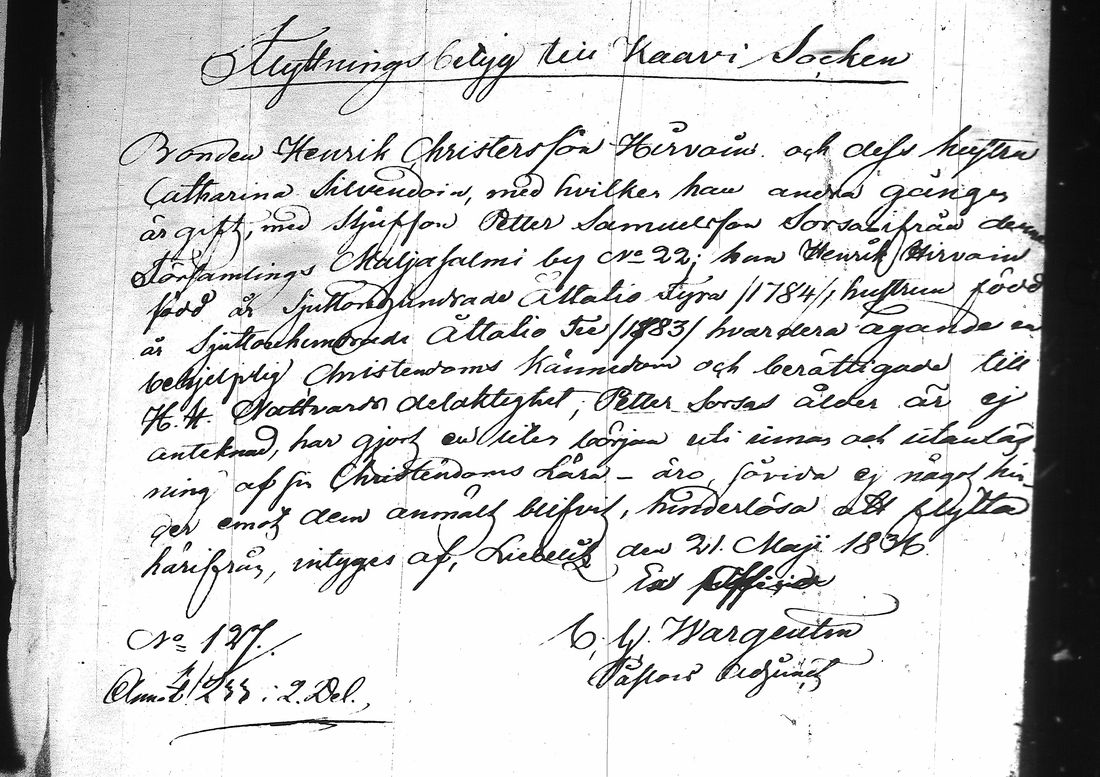 Flyttningsbetyg till Kaavi Socken
Bonden Henrik Christersson Hirvoin och dess hustru
Catharina Silvendoin, med hvilken han andra gången
är gift, med Stjufson Petter Samuelsson Sorsa ifrån denna
Församlings Maljasalmi by No 22; han Henrik Hirvoin
född år Sjuttonhundrade Åttatio Fyra /1784/, hustrun född
år Sjuttonhundrade Åttatio Tre /1783/ hvardera ägande en
behjelplig Christendoms Kännedom och berättigade till
H. H. Nattvards delaktighet; Petter Sorsas ålder är ej
anteknad, har gjort en liten början uti innan och utanläs
ning af sin Christendoms Lära – äro, såvida ej något hin-
der emot dem anmält blifvit, hinderlösa att flytta
härifrån, intyges af, Libelitz den 21. Maji 1836.
Ex Officio
No 127. C. G. Wargentin
Pastors Adjunct
Annot. 233 i 2. Del.